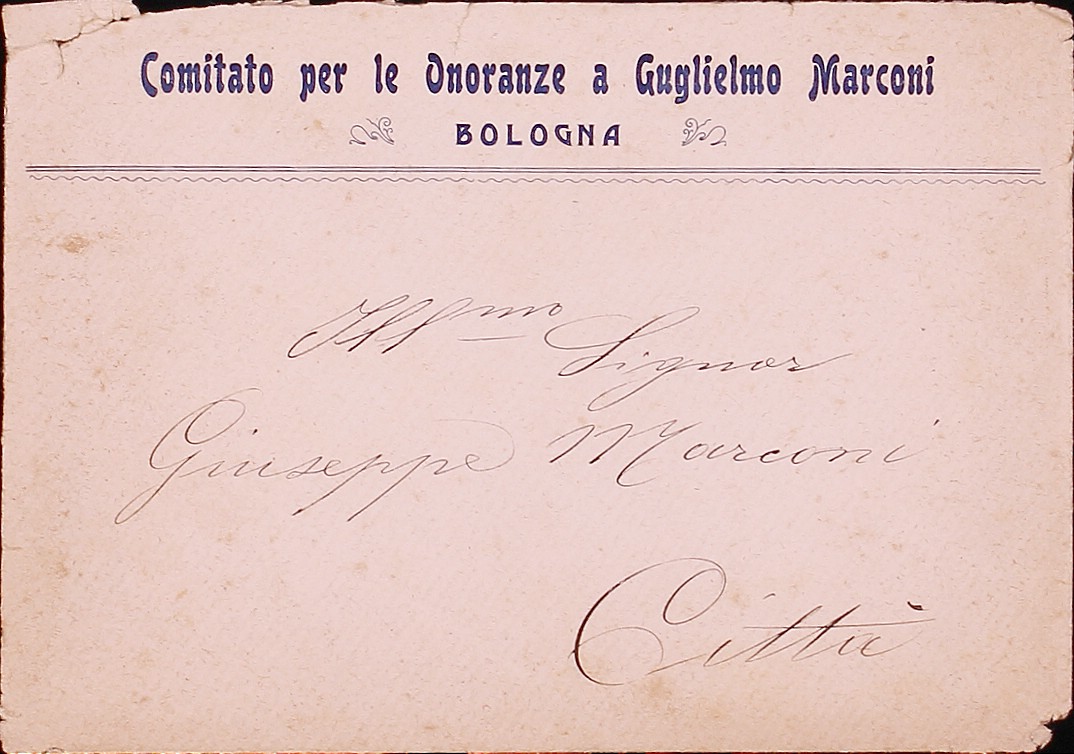 Comitato per le Onoranze a Guglielmo Marconi
BOLOGNA
Ill^mo Signor
Giuseppe Marconi
Città